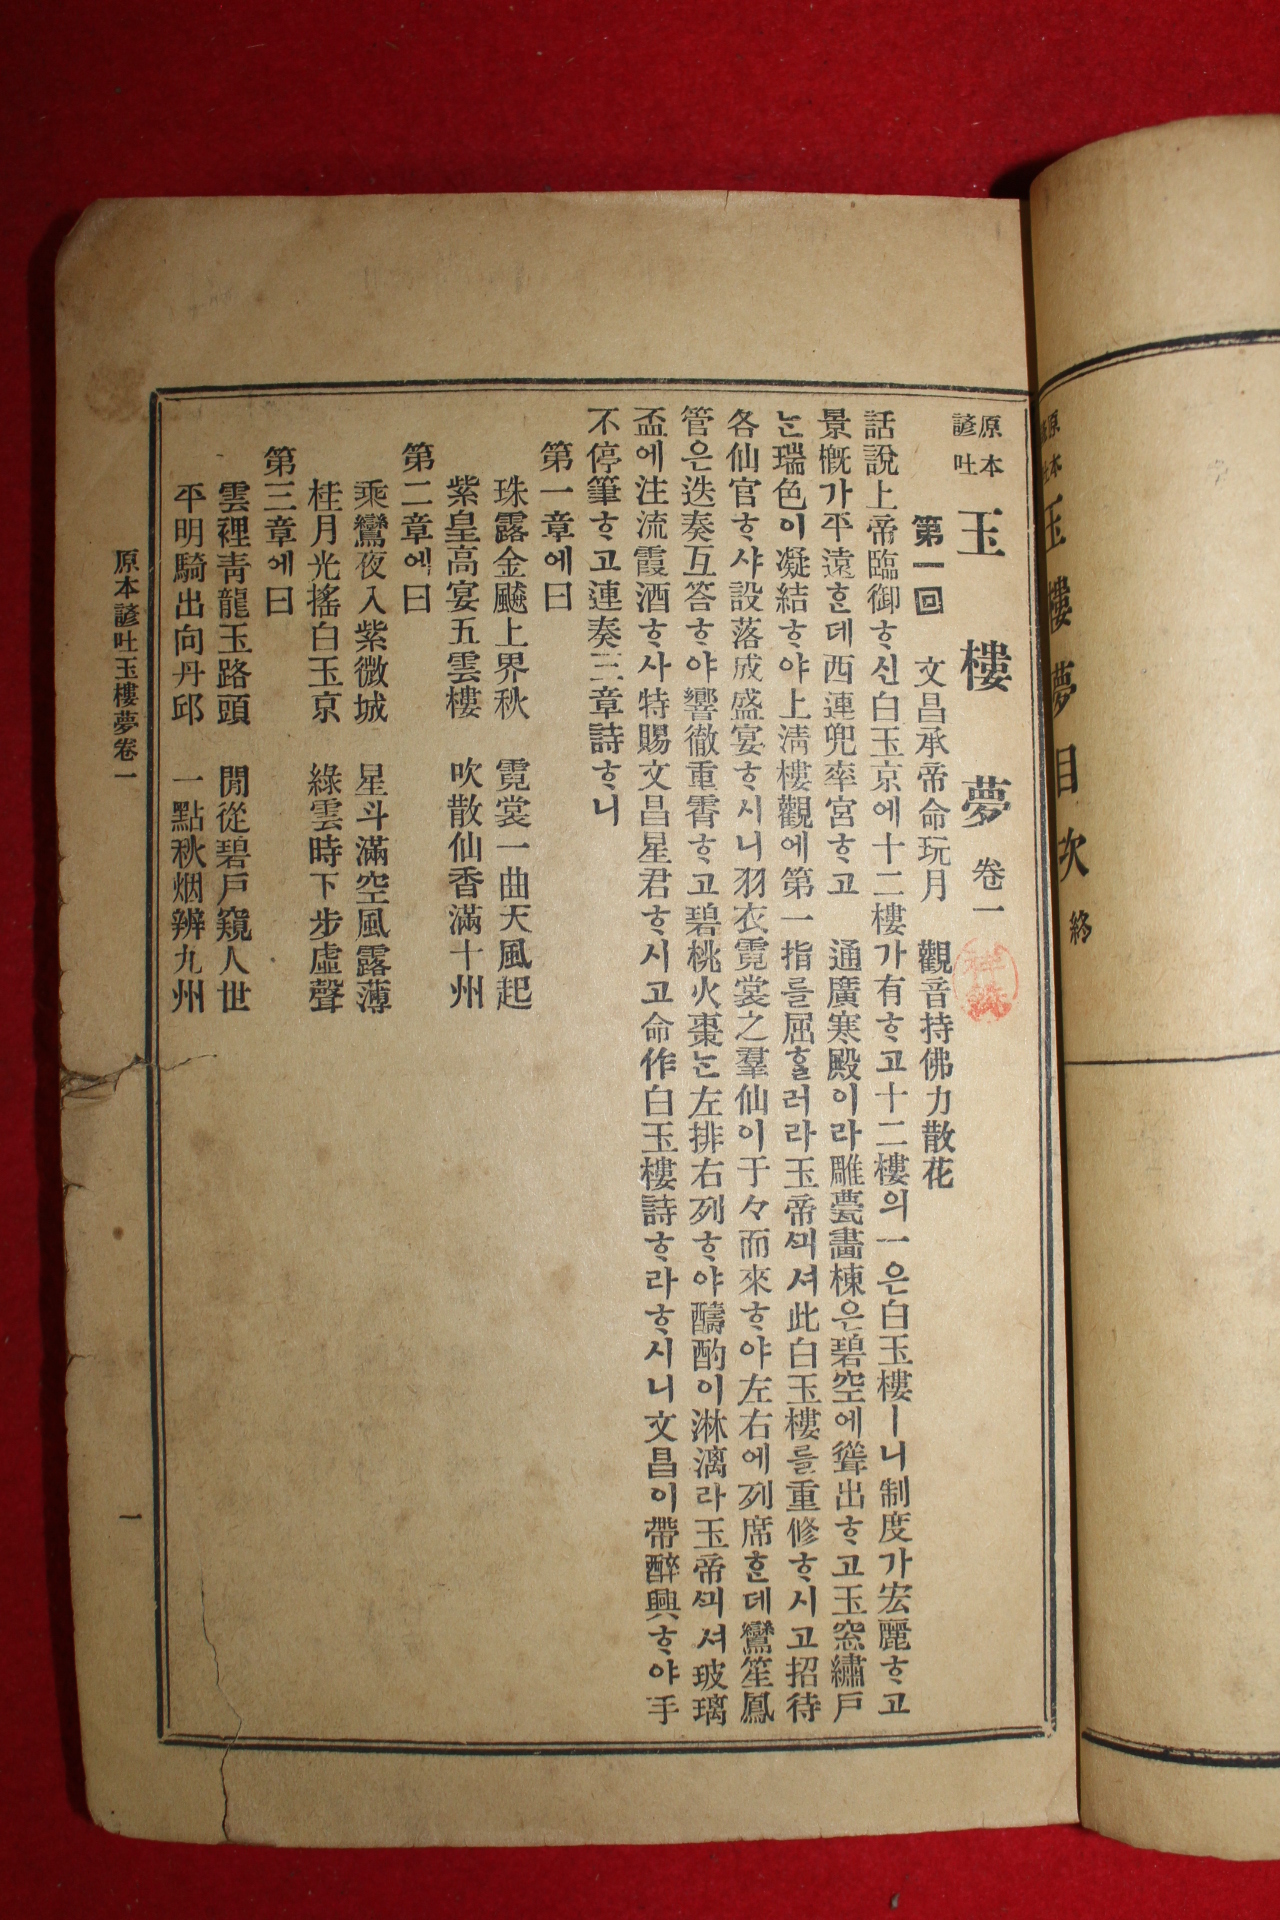 原本諺吐 玉樓夢目次 終
原本諺吐 玉樓夢 卷一
第一回 文昌承帝命玩月 觀音持佛力散花
話說上帝臨御ᄒᆞ신白玉京에十二樓가有ᄒᆞ고十二樓의一은白玉樓ㅣ니制度가宏麗ᄒᆞ고
景槪가平遠ᄒᆞᆫ데西連兜率宮ᄒᆞ고 通廣寒殿이라雕甍畵棟은碧空에聳出ᄒᆞ고玉窓繡戶
ᄂᆞᆫ瑞色이凝結ᄒᆞ야上淸樓觀에第一指를屈ᄒᆞᆯ러라玉帝ᄭᅴ셔此白玉樓를重修ᄒᆞ시고招待
各仙官ᄒᆞ샤設落成盛宴ᄒᆞ시니羽衣霓裳之羣仙이于々而來ᄒᆞ야左右에列席ᄒᆞᆫ데鸞笙鳳
管은迭奏互答ᄒᆞ야響徹重霄ᄒᆞ고碧桃火棗ᄂᆞᆫ左排右列ᄒᆞ야醻酌이淋漓라玉帝ᄭᅴ셔玻璃
盃에注流霞酒ᄒᆞ사特賜文昌星君ᄒᆞ시고命作白玉樓詩ᄒᆞ라ᄒᆞ시니文昌이帶醉興ᄒᆞ야手
不停筆ᄒᆞ고連奏三章詩ᄒᆞ니
第一章에曰
珠露金飈上界秋 霓裳一曲天風起
紫皇高宴五雲樓 吹散仙香滿十州
第二章에曰
乘鸞夜入紫微城 星斗滿空風露薄
桂月光搖白玉京 綠雲時下步虛聲
第三章에曰
雲裡靑龍玉路頭 閒從碧戶窺人世
平明騎出向丹邱 一點秋烟辨九州
原本諺吐玉樓夢卷一 一